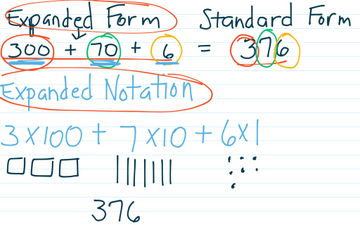 Expanded Form Standard Form
300 + 70 + 6 = 376
Expanded Notation
3 × 100 + 7 × 10 + 6 × 1
376